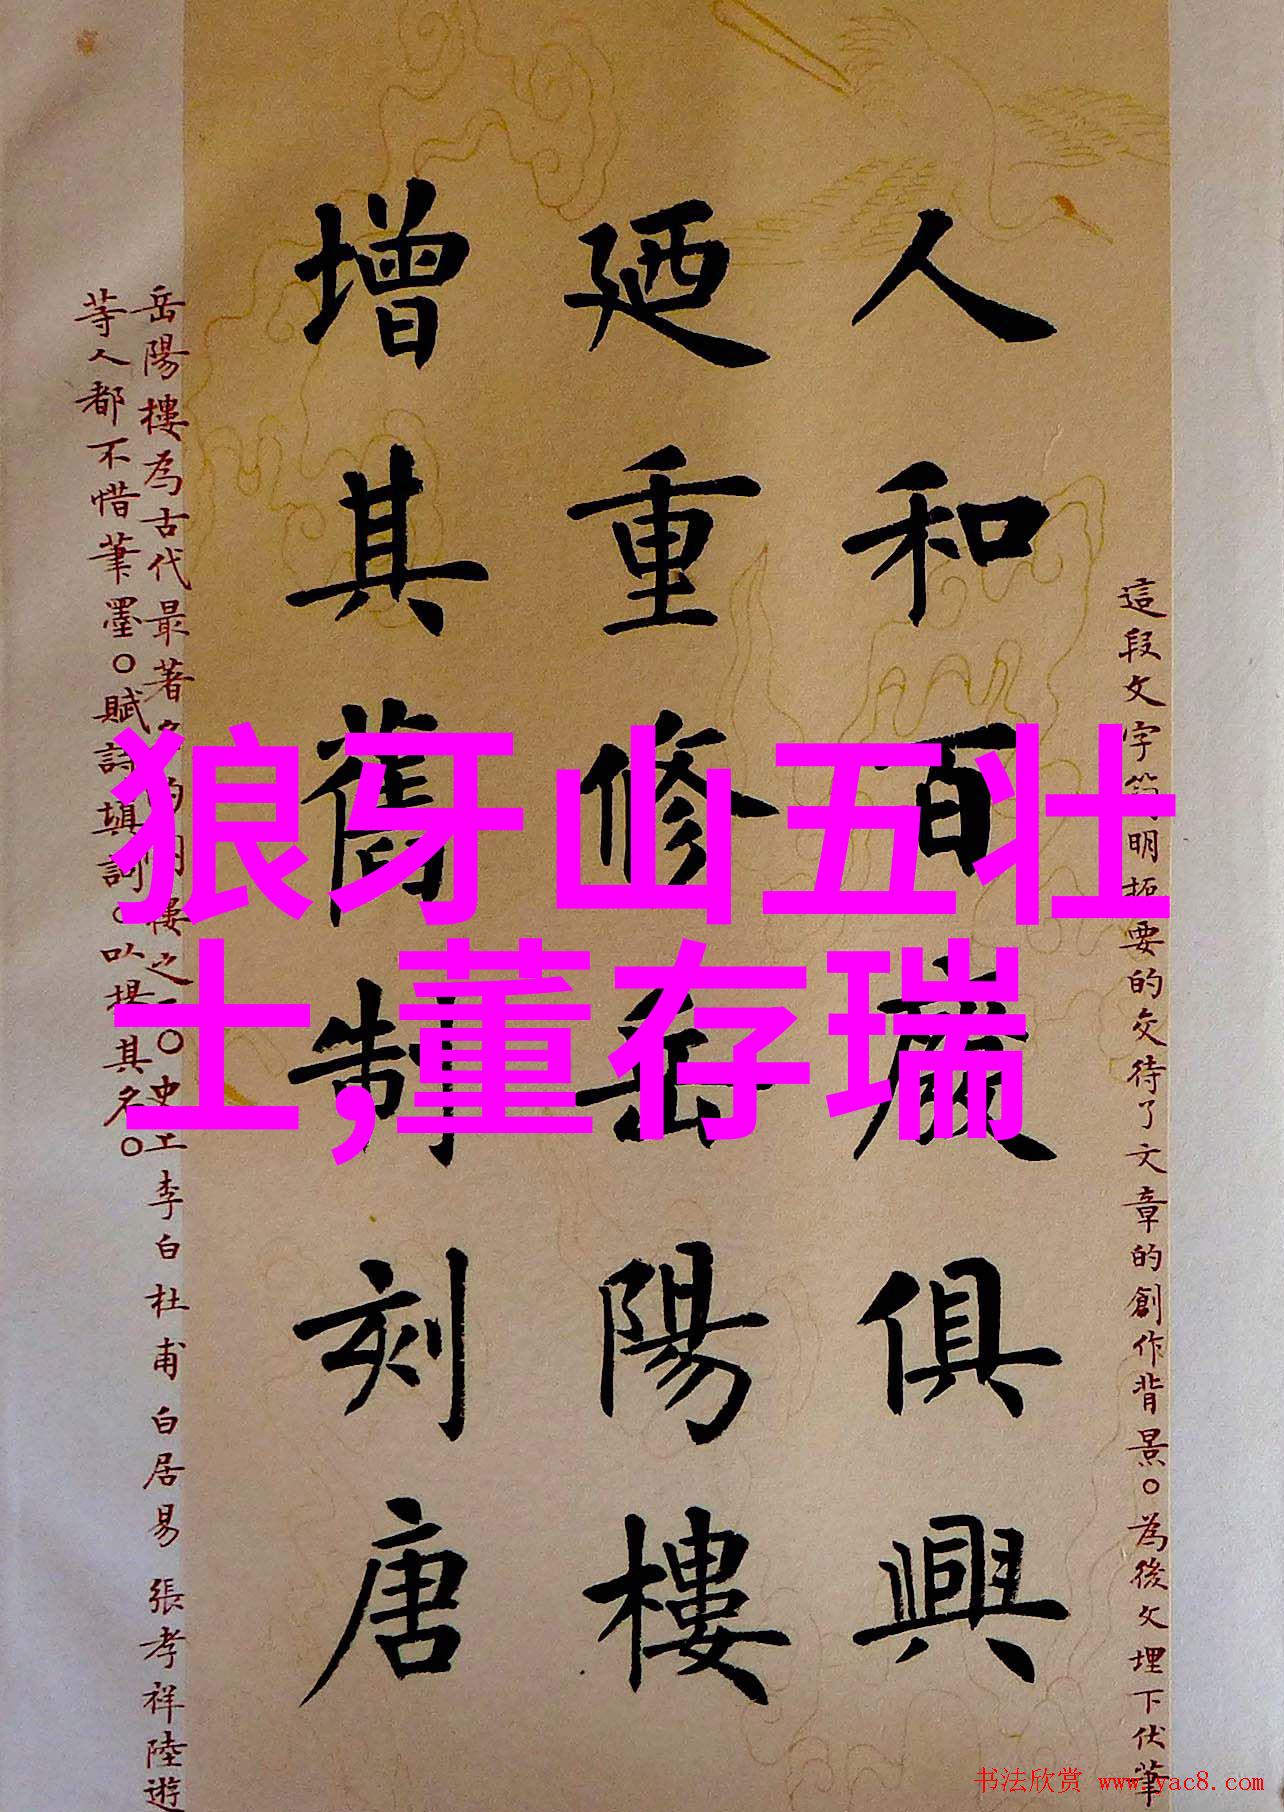 人和百廢俱興
廼重修岳陽樓
增其舊制刻唐
狼牙山五壮
士,董存瑞
這段文字簡明扼要的交待了文章的創作背景。為後文埋下伏筆
岳陽樓為古代最著名的明樓之一。史上李白杜甫白居易張孝祥陸遊
等人都不惜筆墨。賦詩填詞。以揚其名。
书法欣赏 www.yac8.com